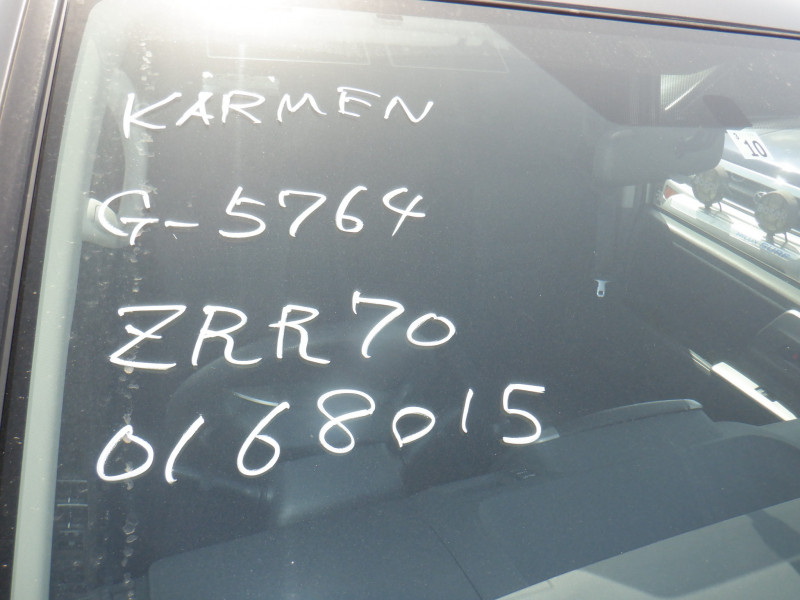 KARMEN
G-5764
ZRR70
0168015
10